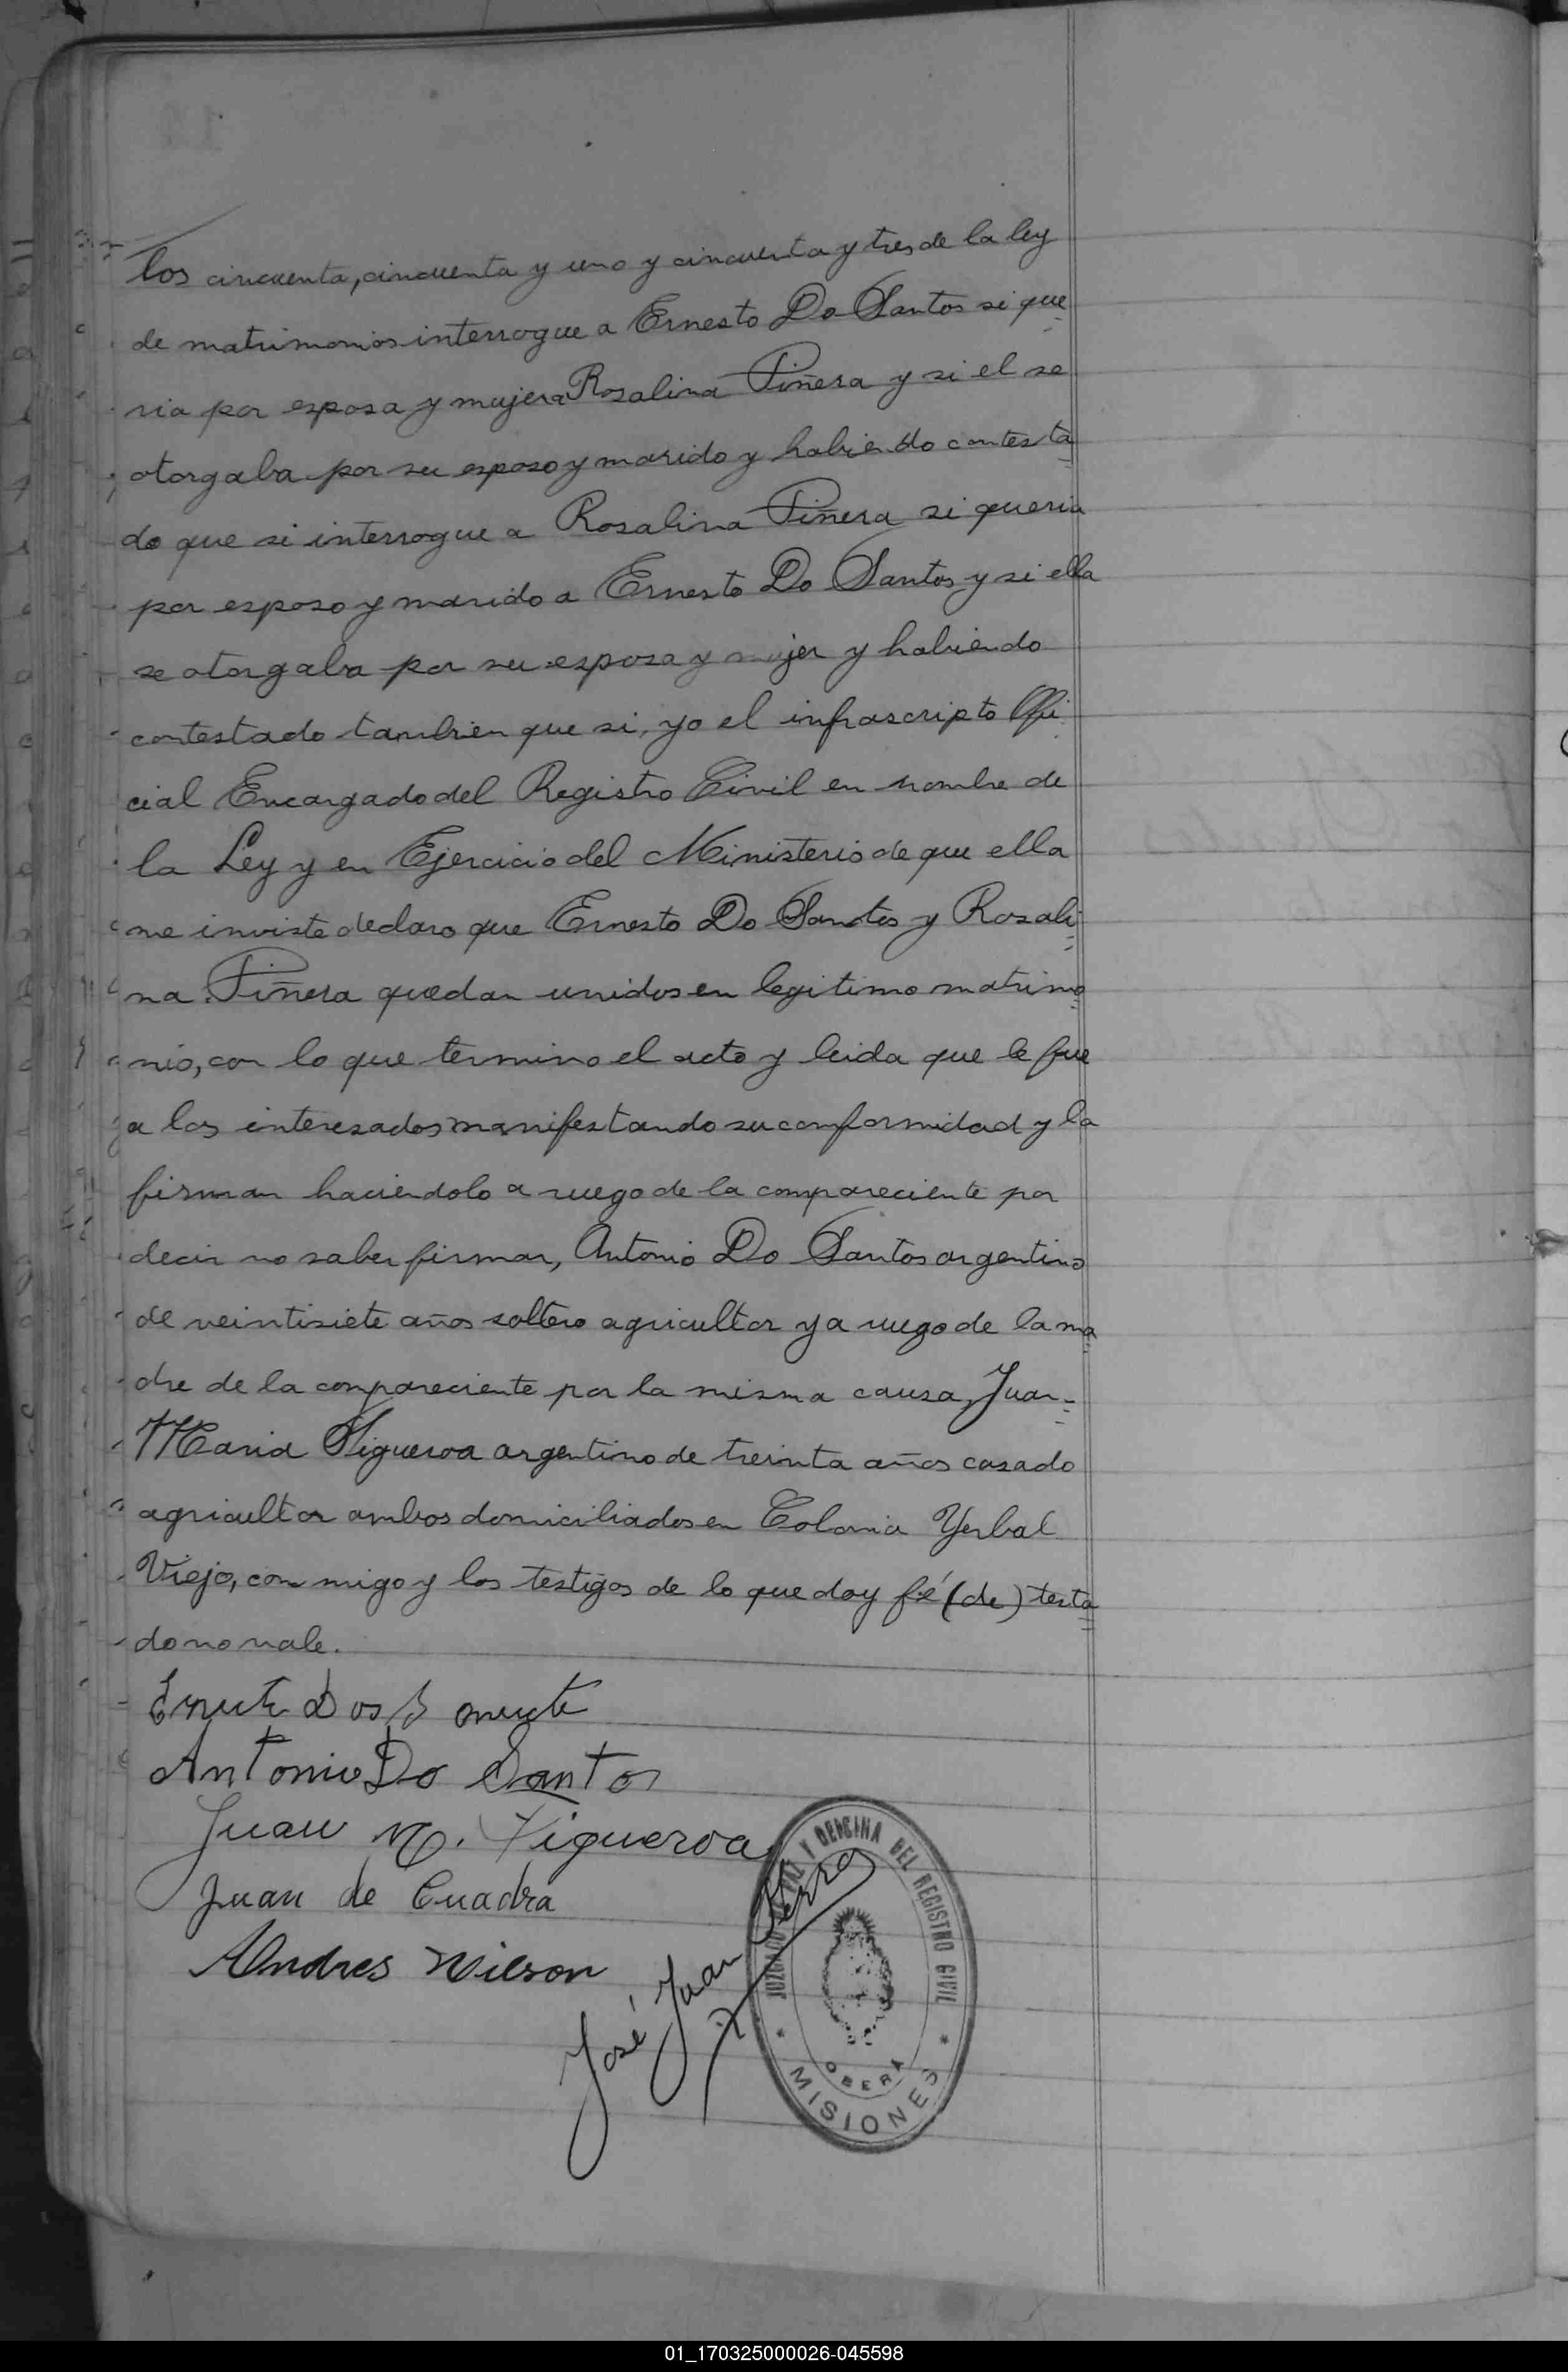 los cincuenta, cincuenta y uno y cincuenta y tres de la ley
de matrimonios interrogue a Ernesto Do Santos si que
ria por esposa y mujer a Rosalina Piñera y si el se
otorgaba por su esposo y marido y habiendo contesta
do que si interrogue a Rosalina Piñera si queria
por esposo y marido a Ernesto Do Santos y si ella
se otorgaba por su esposa y mujer y habiendo
contestado tambien que si, yo el infrascripto Ofi
cial Encargado del Registro Civil en nombre de
la Ley y en Ejercicio del Ministerio de que ella
me inviste declaro que Ernesto Do Santos y Rosali
na Piñera quedan unidos en legitimo matrimo
nio, con lo que termino el acto y leida que le fue
a los interesados manifestando su conformidad y la
firman haciendolo a ruego de la compareciente por
decir no saber firmar, Antonio Do Santos argentino
de veintisiete años soltero agricultor y a ruego de la ma
dre de la compareciente por la misma causa, Juan
Maria Figueroa argentino de treinta años casado
agricultor ambos domiciliados en Colonia Yerbal
Viejo, con migo y los testigos de lo que doy fé (de) testa
do no vale.
Antonio Do Santos
Juan M. Figueroa
Juan de Cuadra
Andres Wilson
José Juan
JUZGADO DE PAZ Y OFICINA DEL REGISTRO CIVIL
OBERA
MISIONES
01_170325000026-045598